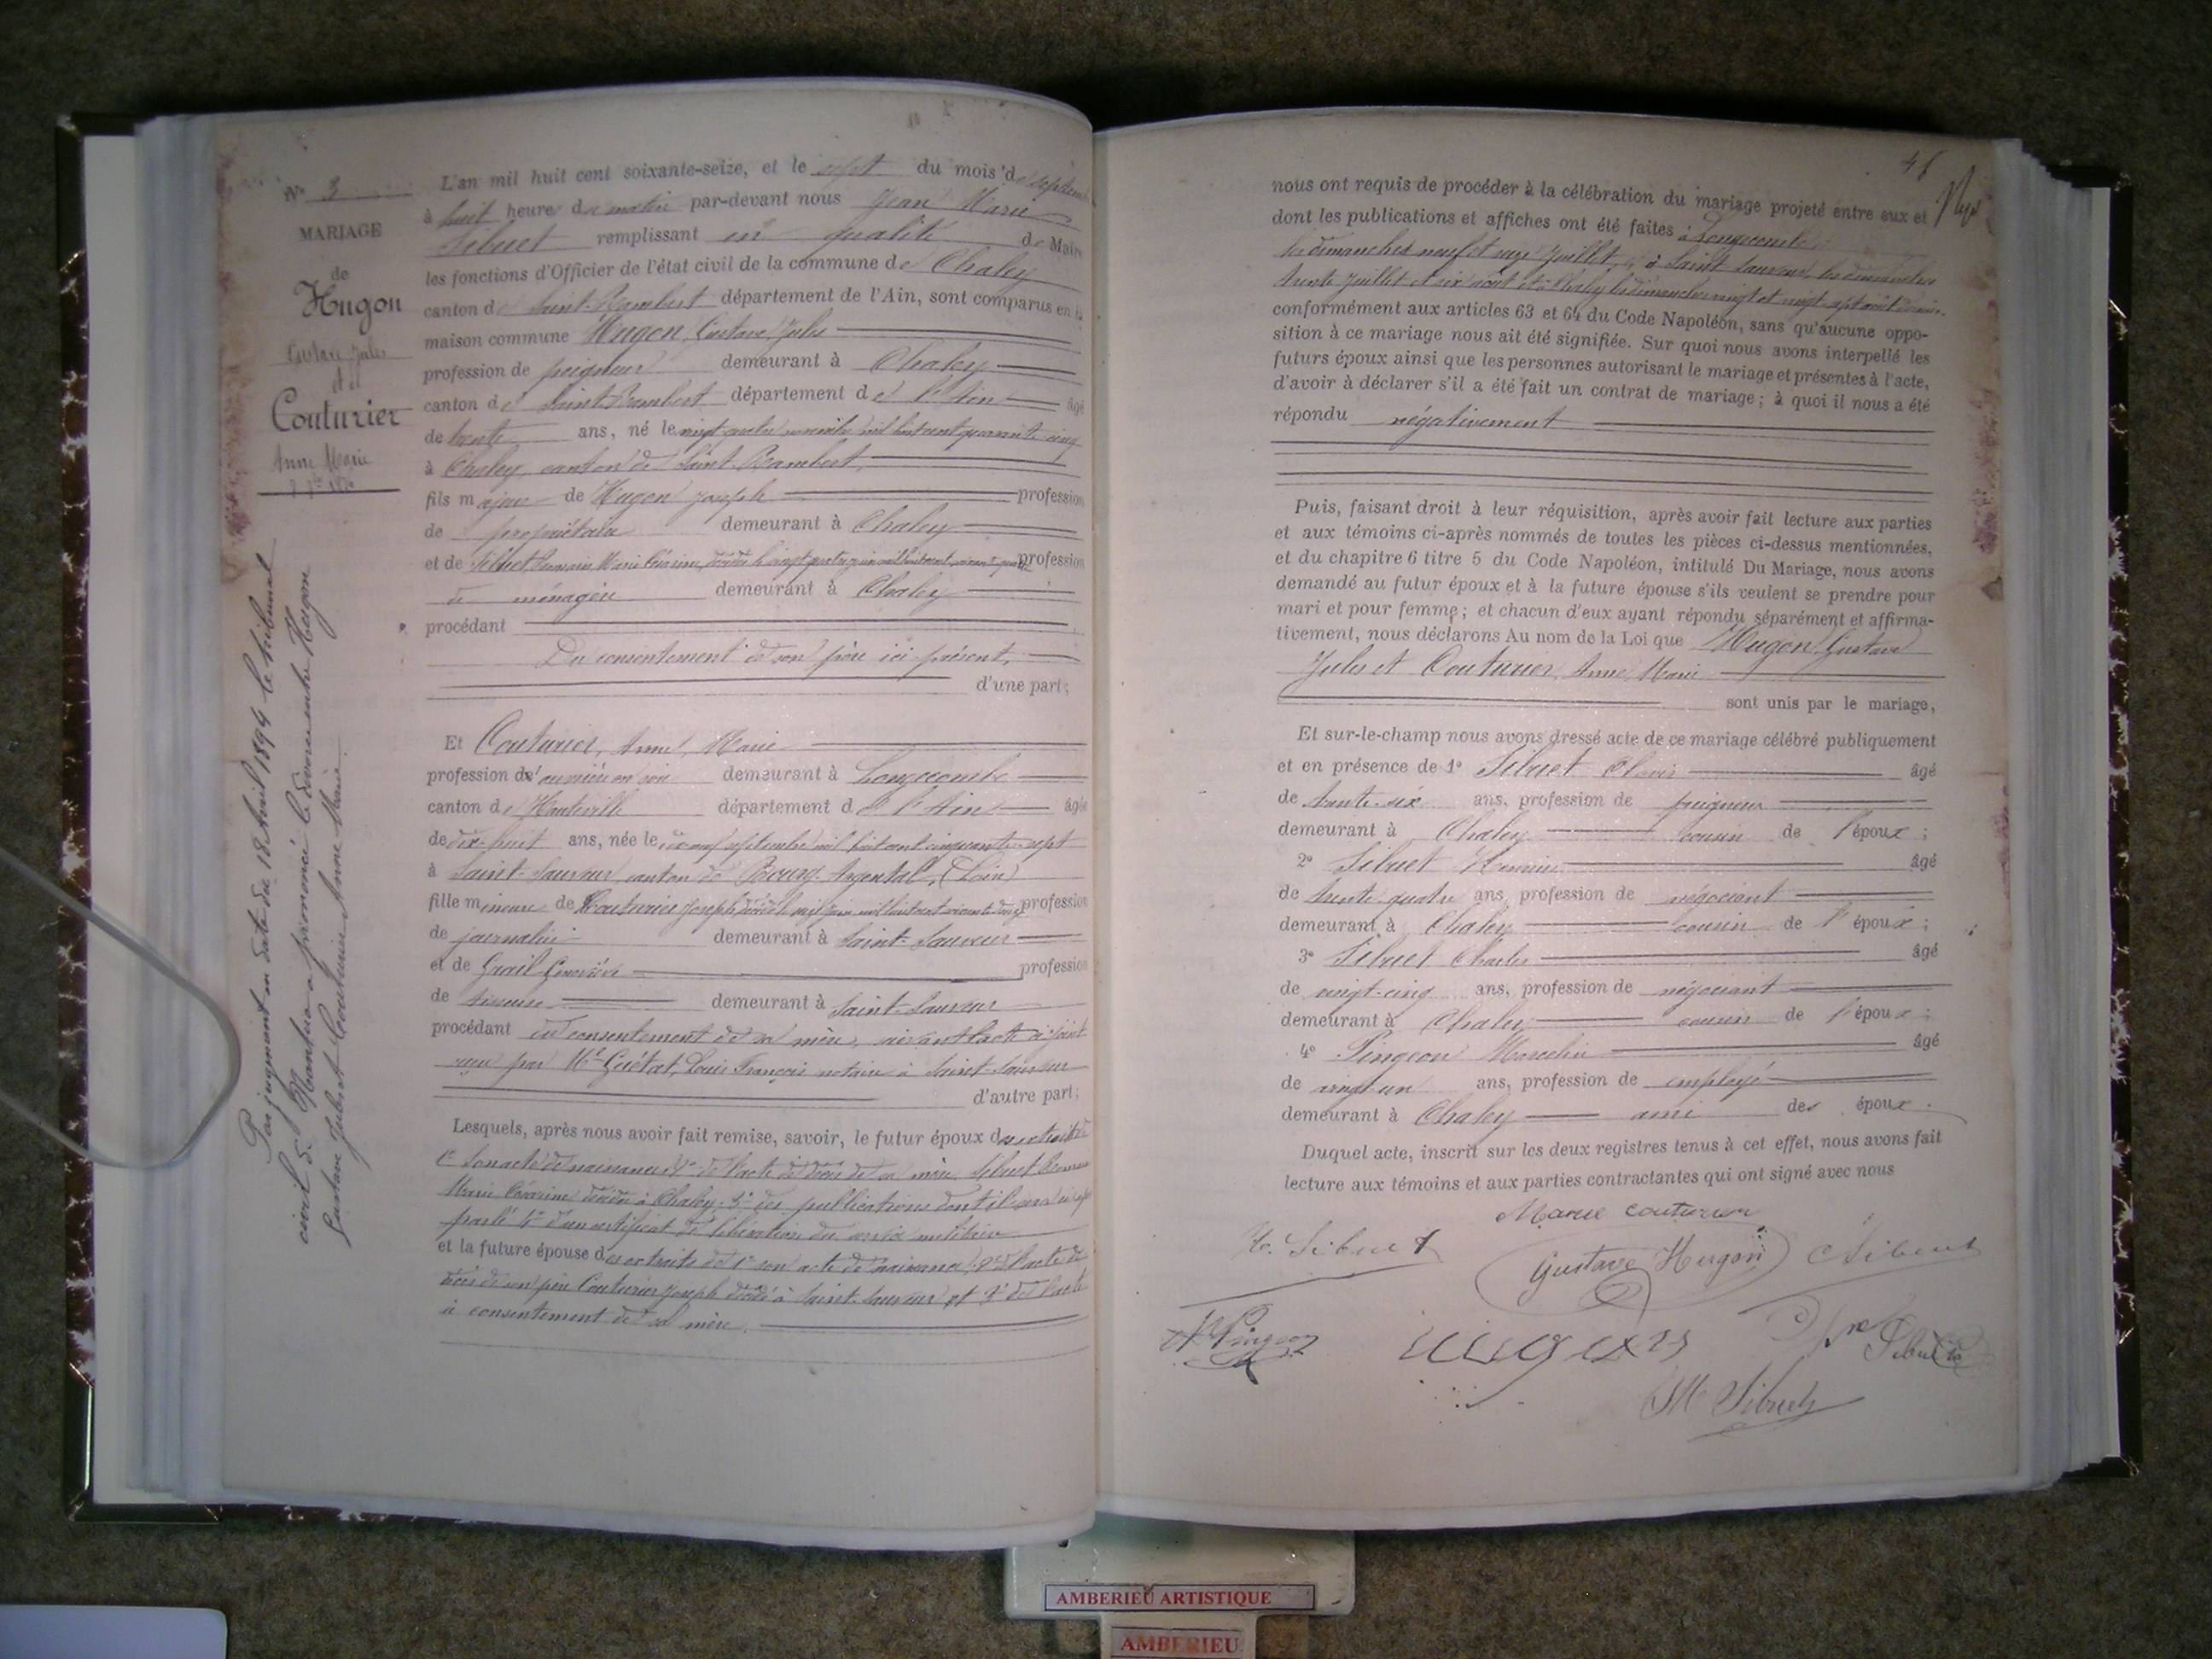 N° 3
MARIAGE
de
Hugon
Gustave Jules
et
Couturier
Anne Marie
Par jugement en date du 18 Avril 1894 le tribunal
civil de Nantua a prononcé le divorce entre Hugon
Gustave Jules et Couturier Anne Marie
L'an mil huit cent soixante-seize, et le sept du mois de septembre
à huit heure du matin par-devant nous Jean Marie
Sibuet remplissant en qualité de Maire
les fonctions d'Officier de l'état civil de la commune de Chaley
canton de Saint-Rambert département de l'Ain, sont comparus en la
maison commune Hugon, Gustave Jules
profession de peigneur demeurant à Chaley
canton de Saint-Rambert département de l'Ain âgé
de trente ans, né le vingt quatre novembre mil huit cent quarante cinq
à Chaley, canton de Saint-Rambert,
fils majeur de Hugon Joseph profession
de propriétaire demeurant à Chaley
et de Sibuet, Marie Césarine, décédée le vingt quatre juin mil huit cent profession
de ménagère demeurant à Chaley
procédant
Du consentement de son père ici présent,
d'une part;
Et Couturier, Anne Marie
profession d'ouvrière en soie demeurant à Longecombe
canton de Hauteville département de l'Ain âgée
de dix-huit ans, née le dix neuf septembre mil huit cent cinquante-sept
à Saint-Sauveur canton de Bourg-Argental, (Loire)
fille mineure de Couturier Joseph décédé le juin mil huit cent soixante profession
de journalier demeurant à Saint-Sauveur
et de Grail Geneviève profession
de tisseuse demeurant à Saint-Sauveur
procédant du consentement de sa mère, suivant l'acte ci-joint
reçu par Me Guétat, Louis François notaire à Saint-Sauveur
d'autre part;
Lesquels, après nous avoir fait remise, savoir, le futur époux des extraits de
1° son acte de naissance 2° de l'acte de décès de sa mère Sibuet
Marie Césarine décédée à Chaley; 3° des publications dont il sera ci-après
parlé 4° d'un certificat de libération du service militaire
et la future épouse des extraits de 1° son acte de naissance, 2° de l'acte de
décès de son père Couturier Joseph décédé à Saint-Sauveur et 3° de l'acte
de consentement de sa mère.
nous ont requis de procéder à la célébration du mariage projeté entre eux et
dont les publications et affiches ont été faites à Longecombe
les dimanches neuf et seize Juillet, à Saint Sauveur les dimanches
trente Juillet et six août et à Chaley les dimanches vingt et vingt sept août
conformément aux articles 63 et 64 du Code Napoléon, sans qu'aucune oppo-
sition à ce mariage nous ait été signifiée. Sur quoi nous avons interpellé les
futurs époux ainsi que les personnes autorisant le mariage et présentes à l'acte,
d'avoir à déclarer s'il a été fait un contrat de mariage; à quoi il nous a été
répondu négativement
Puis, faisant droit à leur réquisition, après avoir fait lecture aux parties
et aux témoins ci-après nommés de toutes les pièces ci-dessus mentionnées,
et du chapitre 6 titre 5 du Code Napoléon, intitulé Du Mariage, nous avons
demandé au futur époux et à la future épouse s'ils veulent se prendre pour
mari et pour femme; et chacun d'eux ayant répondu séparément et affirma-
tivement, nous déclarons Au nom de la Loi que Hugon Gustave
Jules et Couturier Anne Marie
sont unis par le mariage,
Et sur-le-champ nous avons dressé acte de ce mariage célébré publiquement
et en présence de 1° Sibuet Clovis âgé
de trente-six ans, profession de peigneur
demeurant à Chaley cousin de l'époux;
2° Sibuet âgé
de trente-quatre ans, profession de négociant
demeurant à Chaley cousin de l'époux;
3° Sibuet Charles âgé
de vingt-cinq ans, profession de négociant
demeurant à Chaley cousin de l'époux;
4° Pingeon Marcelin âgé
de vingt-un ans, profession de employé
demeurant à Chaley ami des époux.
Duquel acte, inscrit sur les deux registres tenus à cet effet, nous avons fait
lecture aux témoins et aux parties contractantes qui ont signé avec nous
Marie couturier
Sibuet
Gustave Hugon
C Sibuet
Pingeon
ugon
Sibuet
JM Sibuet
AMBERIEU ARTISTIQUE
AMBERIEU